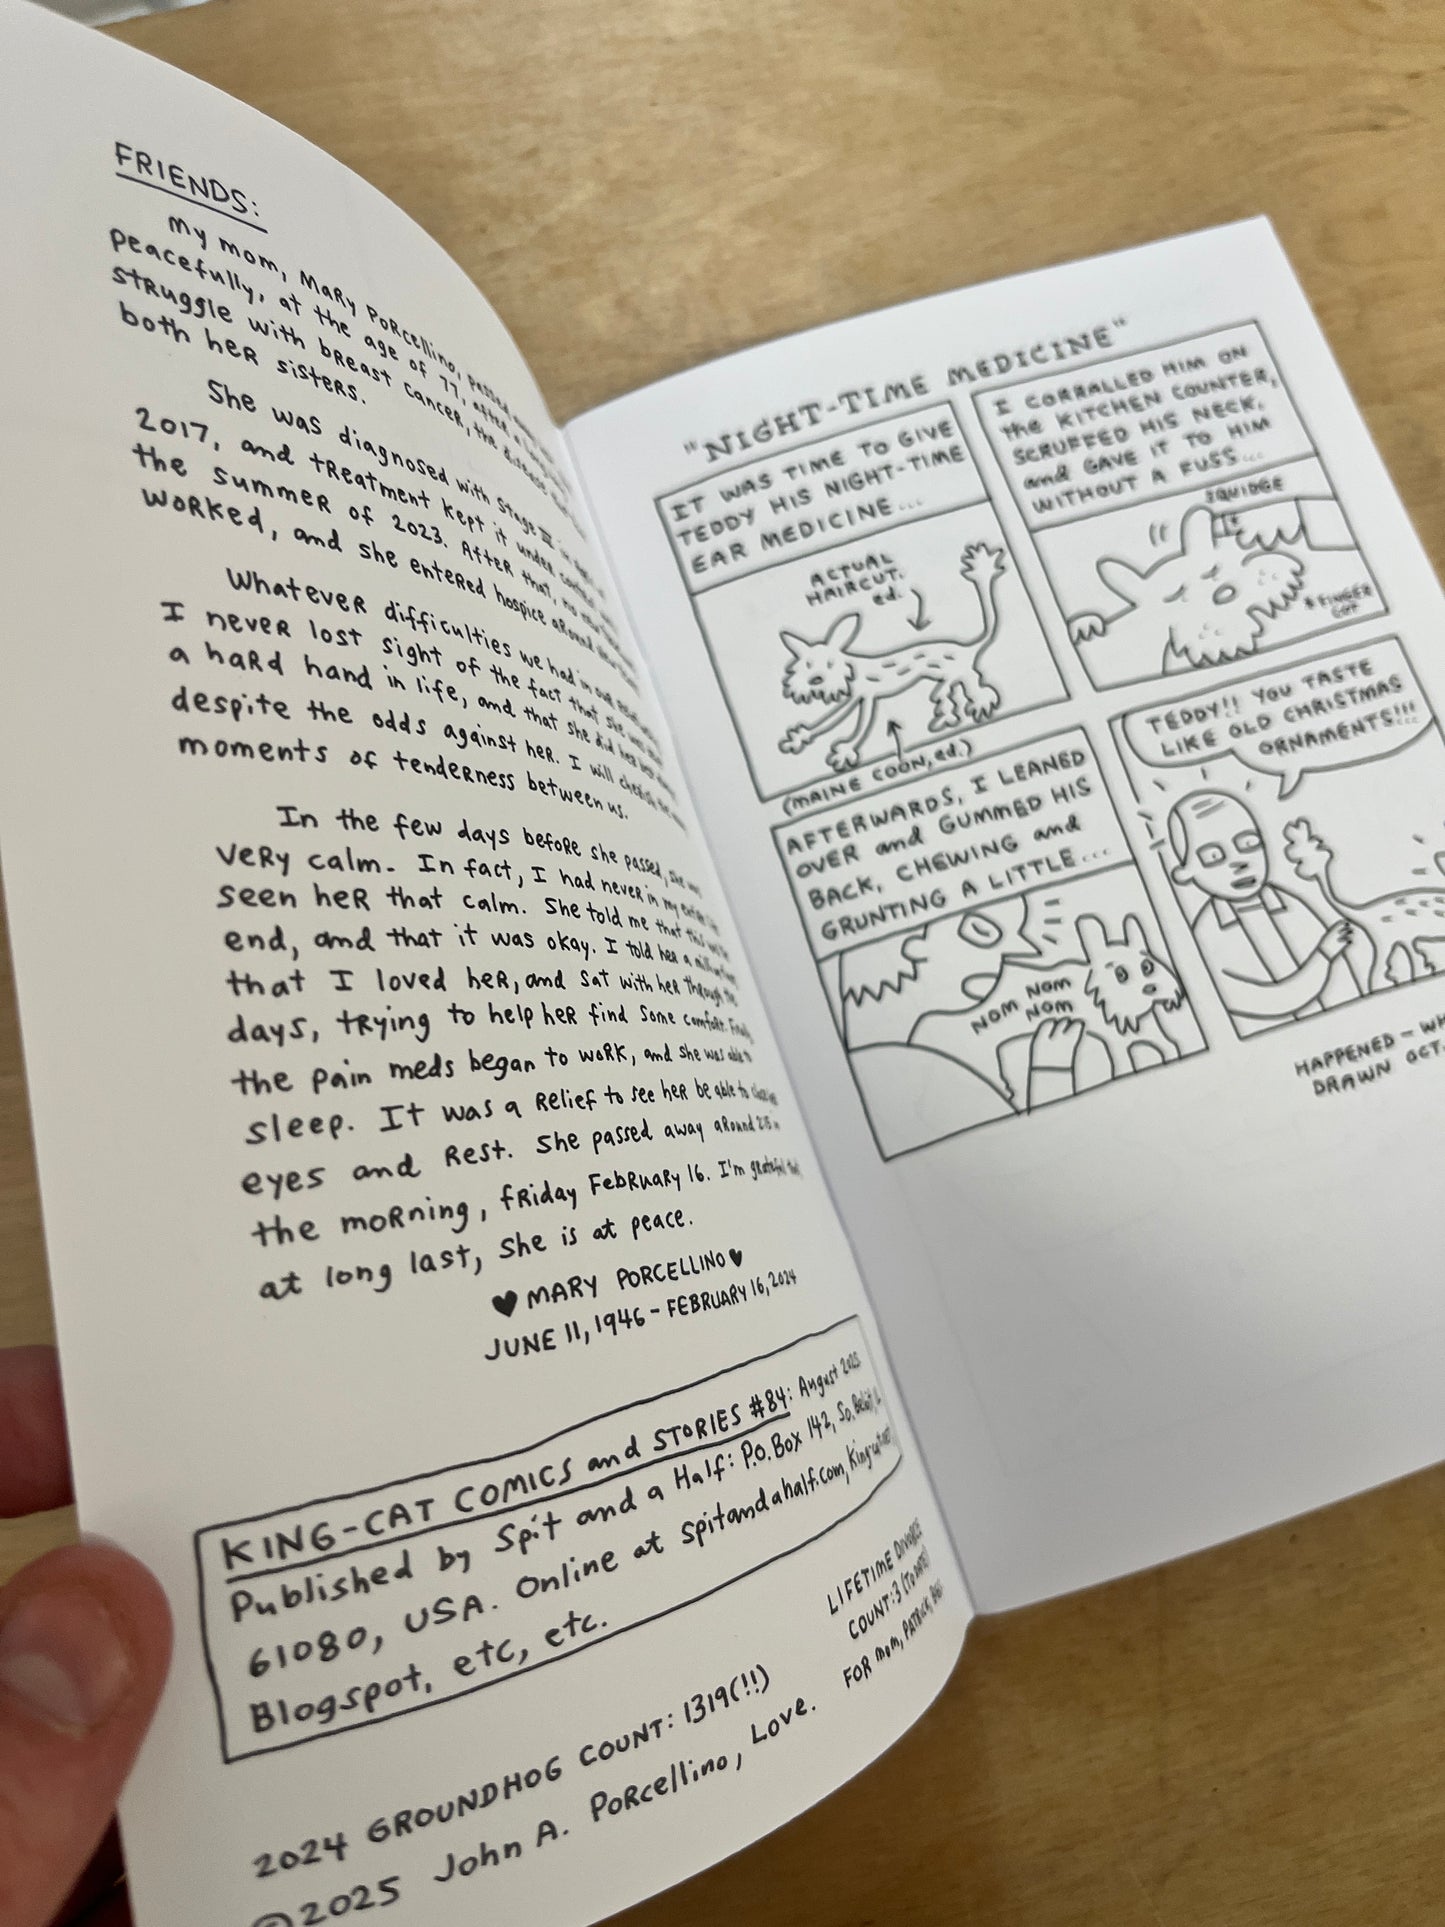 FRIENDS:
My mom, Mary Porcellino, passed
peacefully, at the age of 77, after a long
struggle with breast cancer, the disease that
both her sisters.
She was diagnosed with Stage III in
2017, and treatment kept it under control
the summer of 2023. After that, no
worked, and she entered hospice around
Whatever difficulties we had in our
I never lost sight of the fact that she was
a hard hand in life, and that she did her best
despite the odds against her. I will cherish the
moments of tenderness between us.
In the few days before she passed, she was
very calm. In fact, I had never in my entire life
seen her that calm. She told me that this was the
end, and that it was okay. I told her a million times
that I loved her, and sat with her through the
days, trying to help her find some comfort. Finally
the pain meds began to work, and she was able to
sleep. It was a relief to see her be able to close
eyes and rest. She passed away around
the morning, Friday February 16. I'm grateful that
at long last, she is at peace.
♥ MARY PORCELLINO ♥
JUNE 11, 1946 - FEBRUARY 16, 2024
KING-CAT COMICS and STORIES #84: August 2025
Published by Spit and a Half: P.O. Box 142, So. Beloit, IL
61080, USA. Online at spitandahalf.com,
Blogspot, etc, etc.
LIFETIME DIVORCE
COUNT: 3 (TO DATE)
FOR mom, PATRICK,
2024 GROUNDHOG COUNT: 1319(!!)
©2025 John A. Porcellino, Love.
"NIGHT-TIME MEDICINE"
IT WAS TIME TO GIVE
TEDDY HIS NIGHT-TIME
EAR MEDICINE...
ACTUAL
HAIRCUT.
ed.
(MAINE COON, ed.)
I CORRALLED HIM ON
the KITCHEN COUNTER,
SCRUFFED HIS NECK,
and GAVE IT TO HIM
WITHOUT A FUSS...
SQUIDGE
* FINGER
COT
AFTERWARDS, I LEANED
OVER and GUMMED HIS
BACK, CHEWING and
GRUNTING A LITTLE...
NOM NOM
NOM
TEDDY!! YOU TASTE
LIKE OLD CHRISTMAS
ORNAMENTS!!!
HAPPENED-
DRAWN OCT.